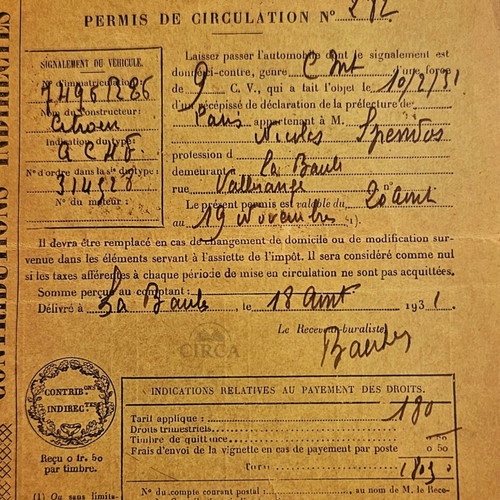 PERMIS DE CIRCULATION N° 272
CONTRIBUTIONS INDIRECTES
SIGNALEMENT DU VÉHICULE.
N° d'immatriculation:
Nom du constructeur:
Citroen
Indication du type:
N° d'ordre dans la série du type:
314528
N° du moteur:
Laissez passer l'automobile dont le signalement est
donné ci-contre, genre d'une force
de 9 C. V., qui a fait l'objet le 10/2/31
d'un récépissé de déclaration de la préfecture de
Paris appartenant à M.
Nicolas
profession d
demeurant à La Baule
rue n°
Le présent permis est valable du 20 Avril
au 19 Novembre (1).
Il devra être remplacé en cas de changement de domicile ou de modification sur-
venue dans les éléments servant à l'assiette de l'impôt. Il sera considéré comme nul
si les taxes afférentes à chaque période de mise en circulation ne sont pas acquittées.
Somme perçue au comptant:
Délivré à La Baule, le 18 Avril 1931
Le Receveur-buraliste,
CIRCA
CONTRIB.
INDIREC.
Reçu 0 fr. 50
par timbre.
INDICATIONS RELATIVES AU PAYEMENT DES DROITS.
Tarif applique: 180
Droits trimestriels:
Timbre de quittance
Frais d'envoi de la vignette en cas de payement par poste 0 50
TOTAL
N° du compte courant postal: au nom de M. le Rece-
(1) Ou sans limite-